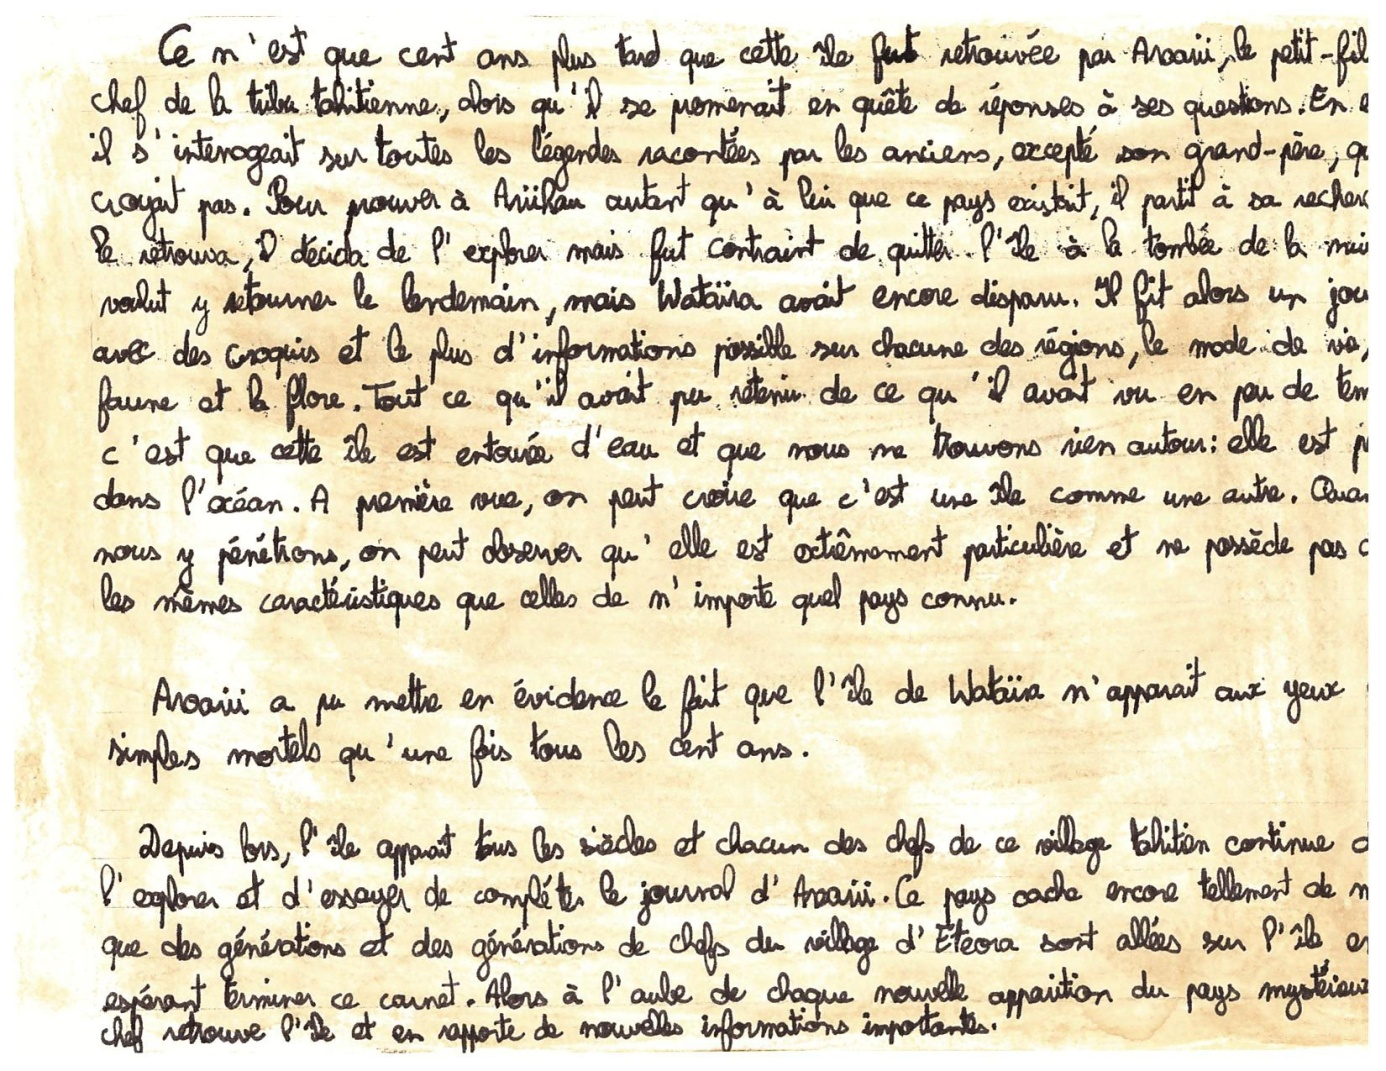 Ce n'est que cent ans plus tard que cette île fut retrouvée par Aroarii, le petit-fil
chef de la tribu tahitienne, alors qu'il se promenait en quête de réponses à ses questions. En e
il s'interrogeait sur toutes les légendes racontées par les anciens, excepté son grand-père, qu
croyait pas. Pour prouver à Ariihau autant qu'à lui que ce pays existait, il partit à sa recherc
le retrouva, il décida de l'explorer mais fut contraint de quitter l'île à la tombée de la nui
voulut y retourner le lendemain, mais Wataïra avait encore disparu. Il fit alors un jou
avec des croquis et le plus d'informations possible sur chacune des régions, le mode de vie,
faune et la flore. Tout ce qu'il avait pu retenir de ce qu'il avait vu en peu de tem
c'est que cette île est entourée d'eau et que nous ne trouvons rien autour: elle est p
dans l'océan. A première vue, on peut croire que c'est une île comme une autre. Quan
nous y pénétrons, on peut observer qu'elle est extrêmement particulière et ne possède pas d
les mêmes caractéristiques que celles de n'importe quel pays connu.
Aroarii a pu mettre en évidence le fait que l'île de Wataïra n'apparait aux yeux
simples mortels qu'une fois tous les cent ans.
Depuis lors, l'île apparait tous les siècles et chacun des chefs de ce village tahitien continue d
l'explorer et d'essayer de compléter le journal d'Aroarii. Ce pays cache encore tellement de m
que des générations et des générations de chefs du village d'Eteora sont allées sur l'île en
espérant terminer ce carnet. Alors à l'aube de chaque nouvelle apparition du pays mystérieux
chef retrouve l'île et en rapporte de nouvelles informations importantes.